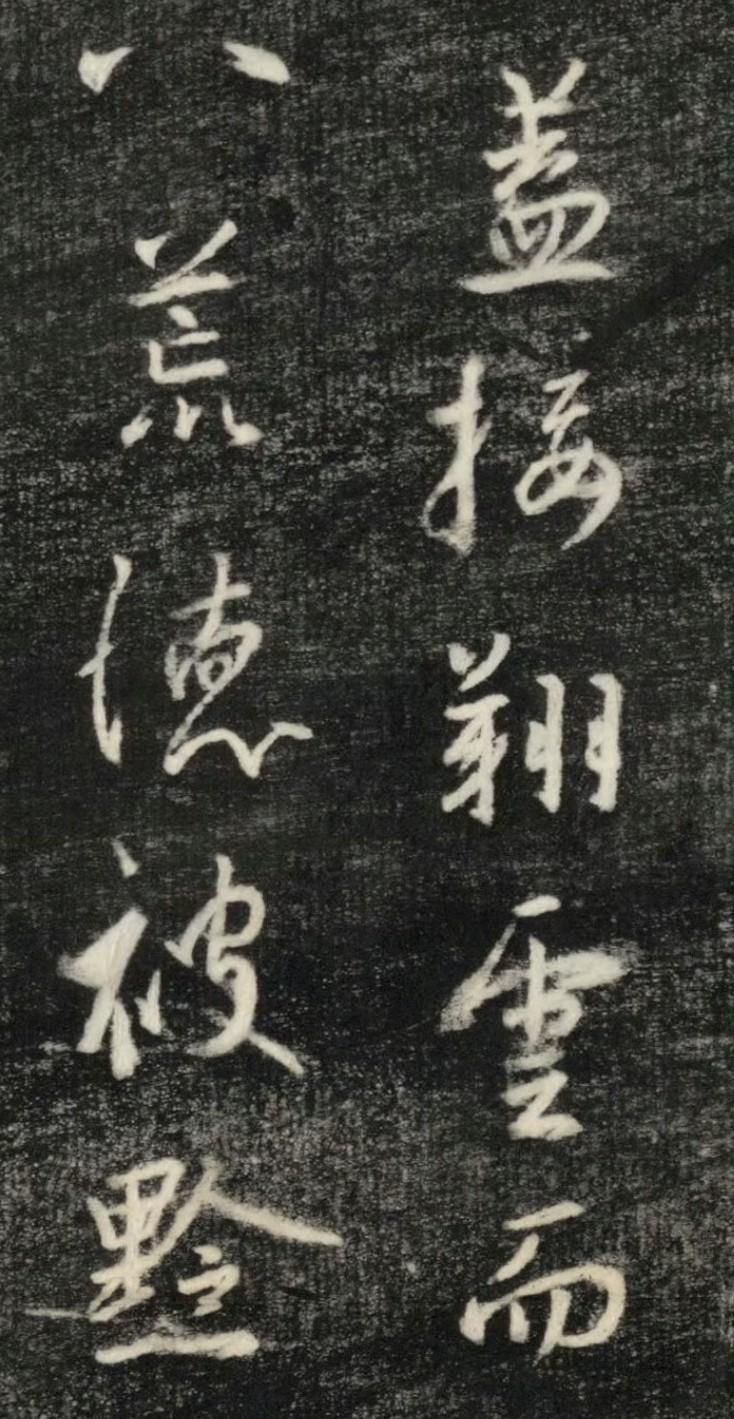 盖接翔雲而
八荒德被黔